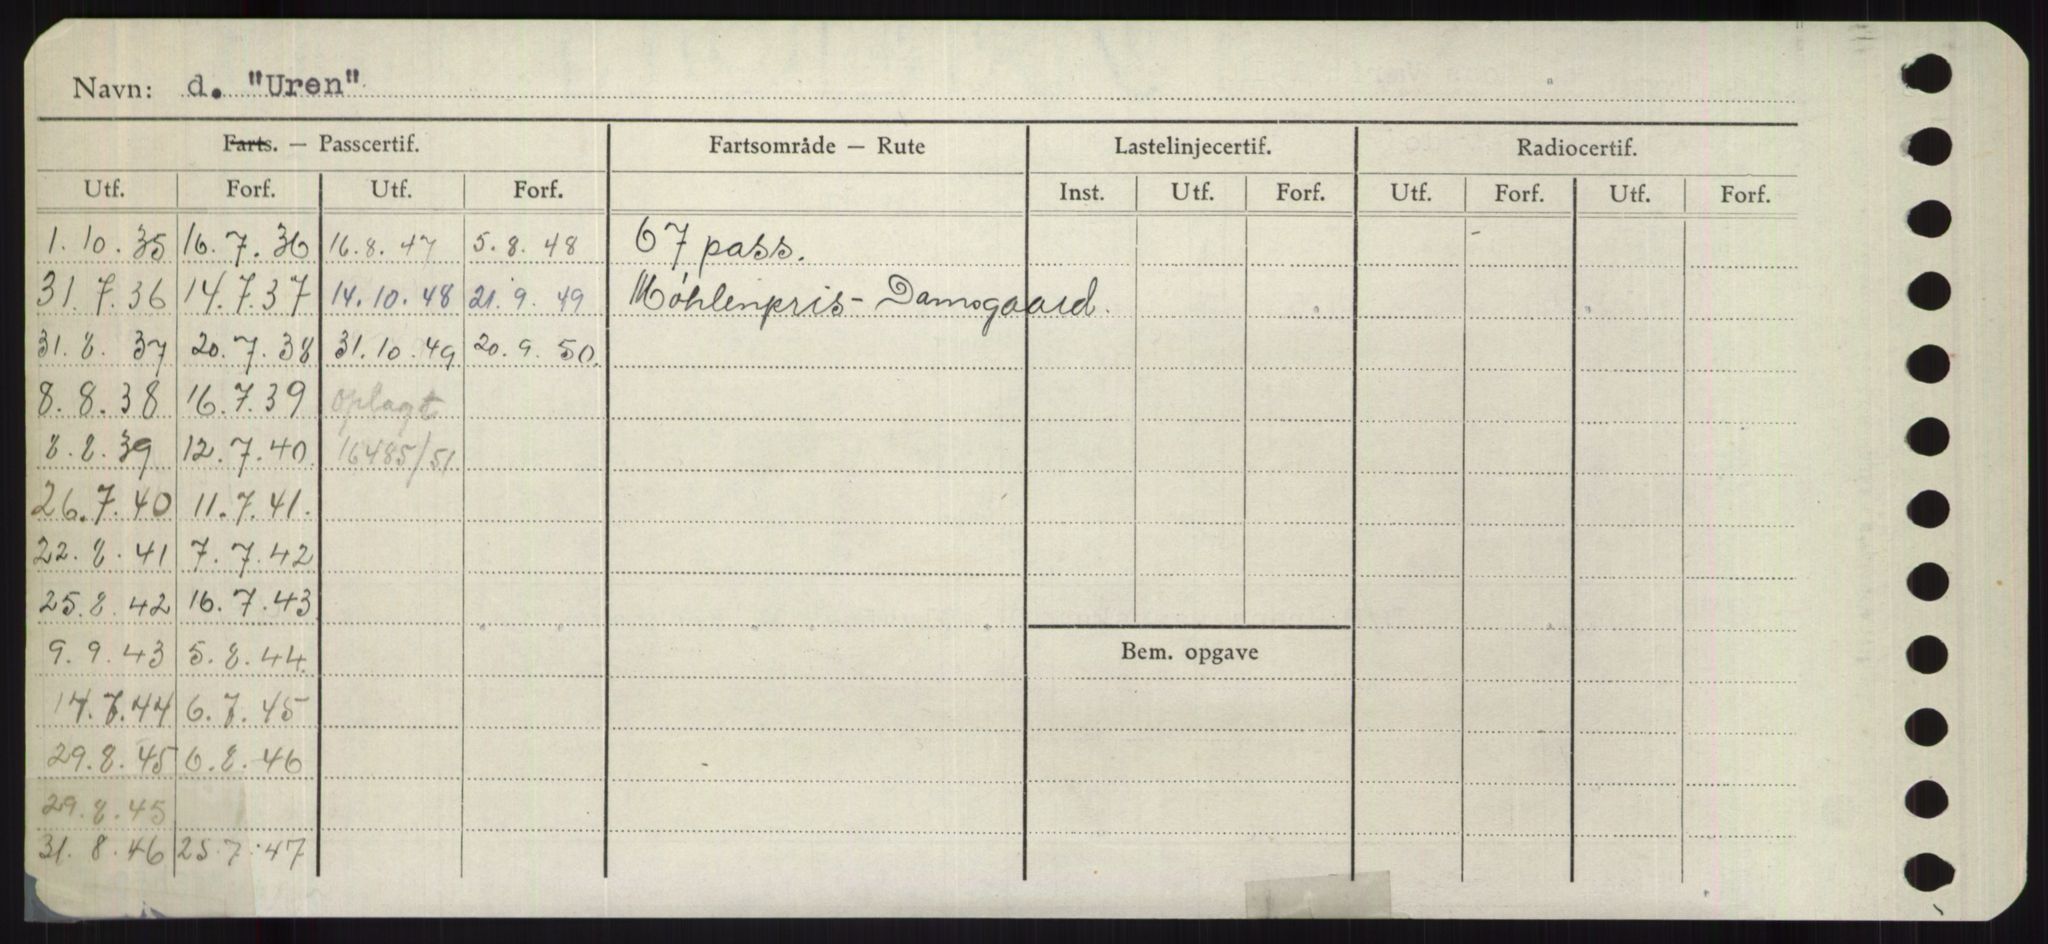 Navn: d. "Uren"
Farts. — Passcertif. Fartsområde — Rute Lastelinjecertif. Radiocertif.
Utf. Forf. Utf. Forf. Inst. Utf. Forf. Utf. Forf. Utf. Forf.
1. 10. 35 16. 7. 36 16. 8. 47 5. 8. 48 67 pass.
31. 7. 36 14. 7. 37 14. 10. 48 21. 9. 49 Møhlenpris - Damsgaard.
31. 8. 37 20. 7. 38 31. 10. 49 20. 9. 50.
8. 8. 38 16. 7. 39 oplagt
8. 8. 39 12. 7. 40. 16485/51
26. 7. 40 11. 7. 41.
22. 8. 41 7. 7. 42
25. 8. 42 16. 7. 43
9. 9. 43 5. 8. 44.
Bem. opgave
17. 7. 44 6. 7. 45
29. 8. 45 6. 8. 46
29. 8. 45
31. 8. 46 25. 7. 47